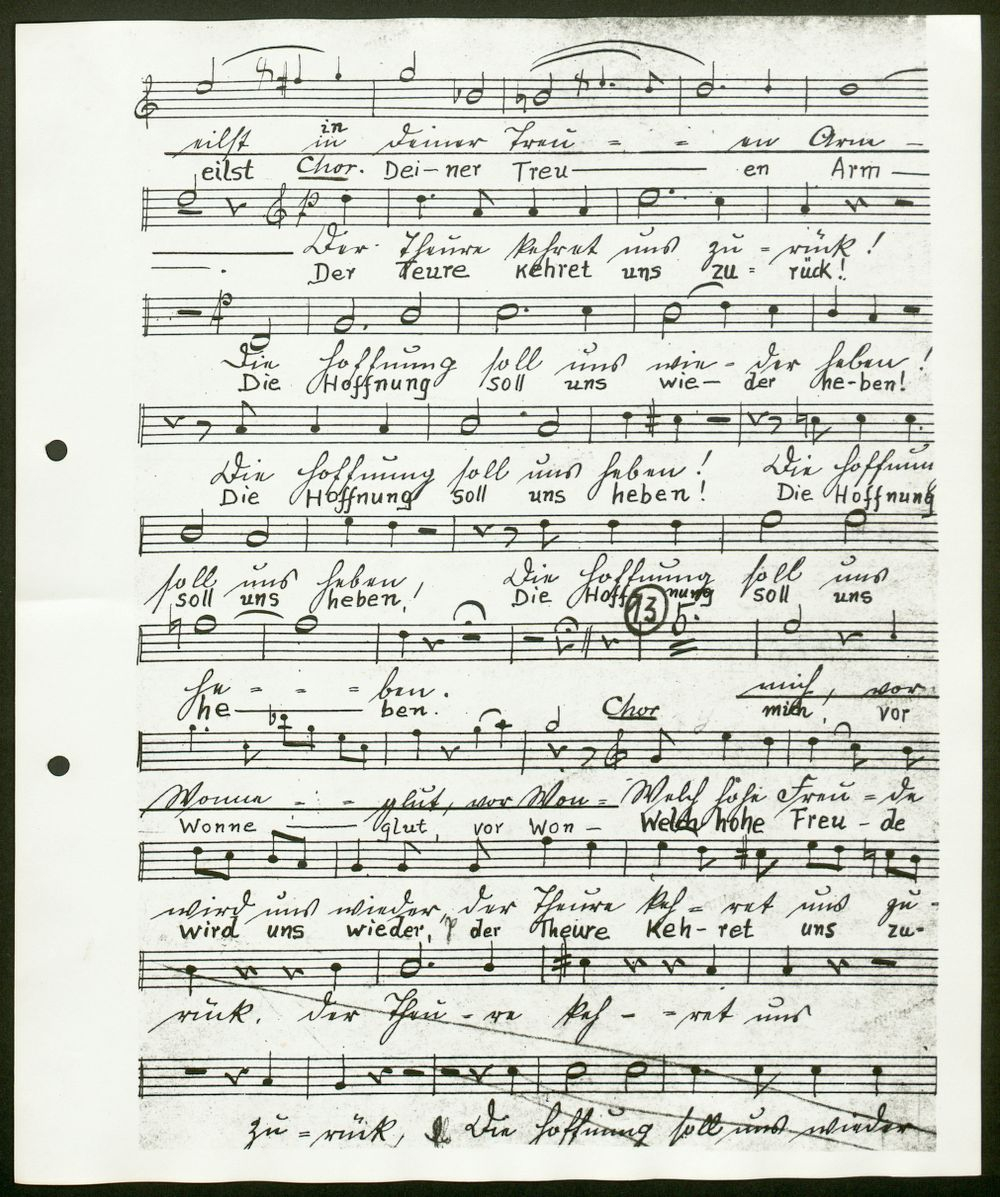 eilst in in deiner Treu = = en Arm -
eilst Chor. Dei-ner Treu en Arm
p
Der Theure kehret uns zu = rück!
Der Teure kehret uns zu = rück!
p
Die Hoffnung soll uns wie - der heben!
Die Hoffnung soll uns wie- der he-ben!
Die Hoffnung soll uns heben! Die Hoffnun
Die Hoffnung soll uns heben! Die Hoffnung
soll uns heben! Die Hoffnung soll uns
soll uns heben! Die Hoffnung soll uns
13 5.
he = = = ben. mich, vor
he ben. Chor mich, vor
Wonne - : - glut, vor Won = Welch hohe Freu = de
Wonne glut, vor Won - Welch hohe Freu - de
wird uns wieder, der Theure keh = ret uns zu -
wird uns wieder, der Theure Keh- ret uns zu-
rück. der Theu - re keh - = ret uns
zu = rück, Die Hoffnung soll uns wieder